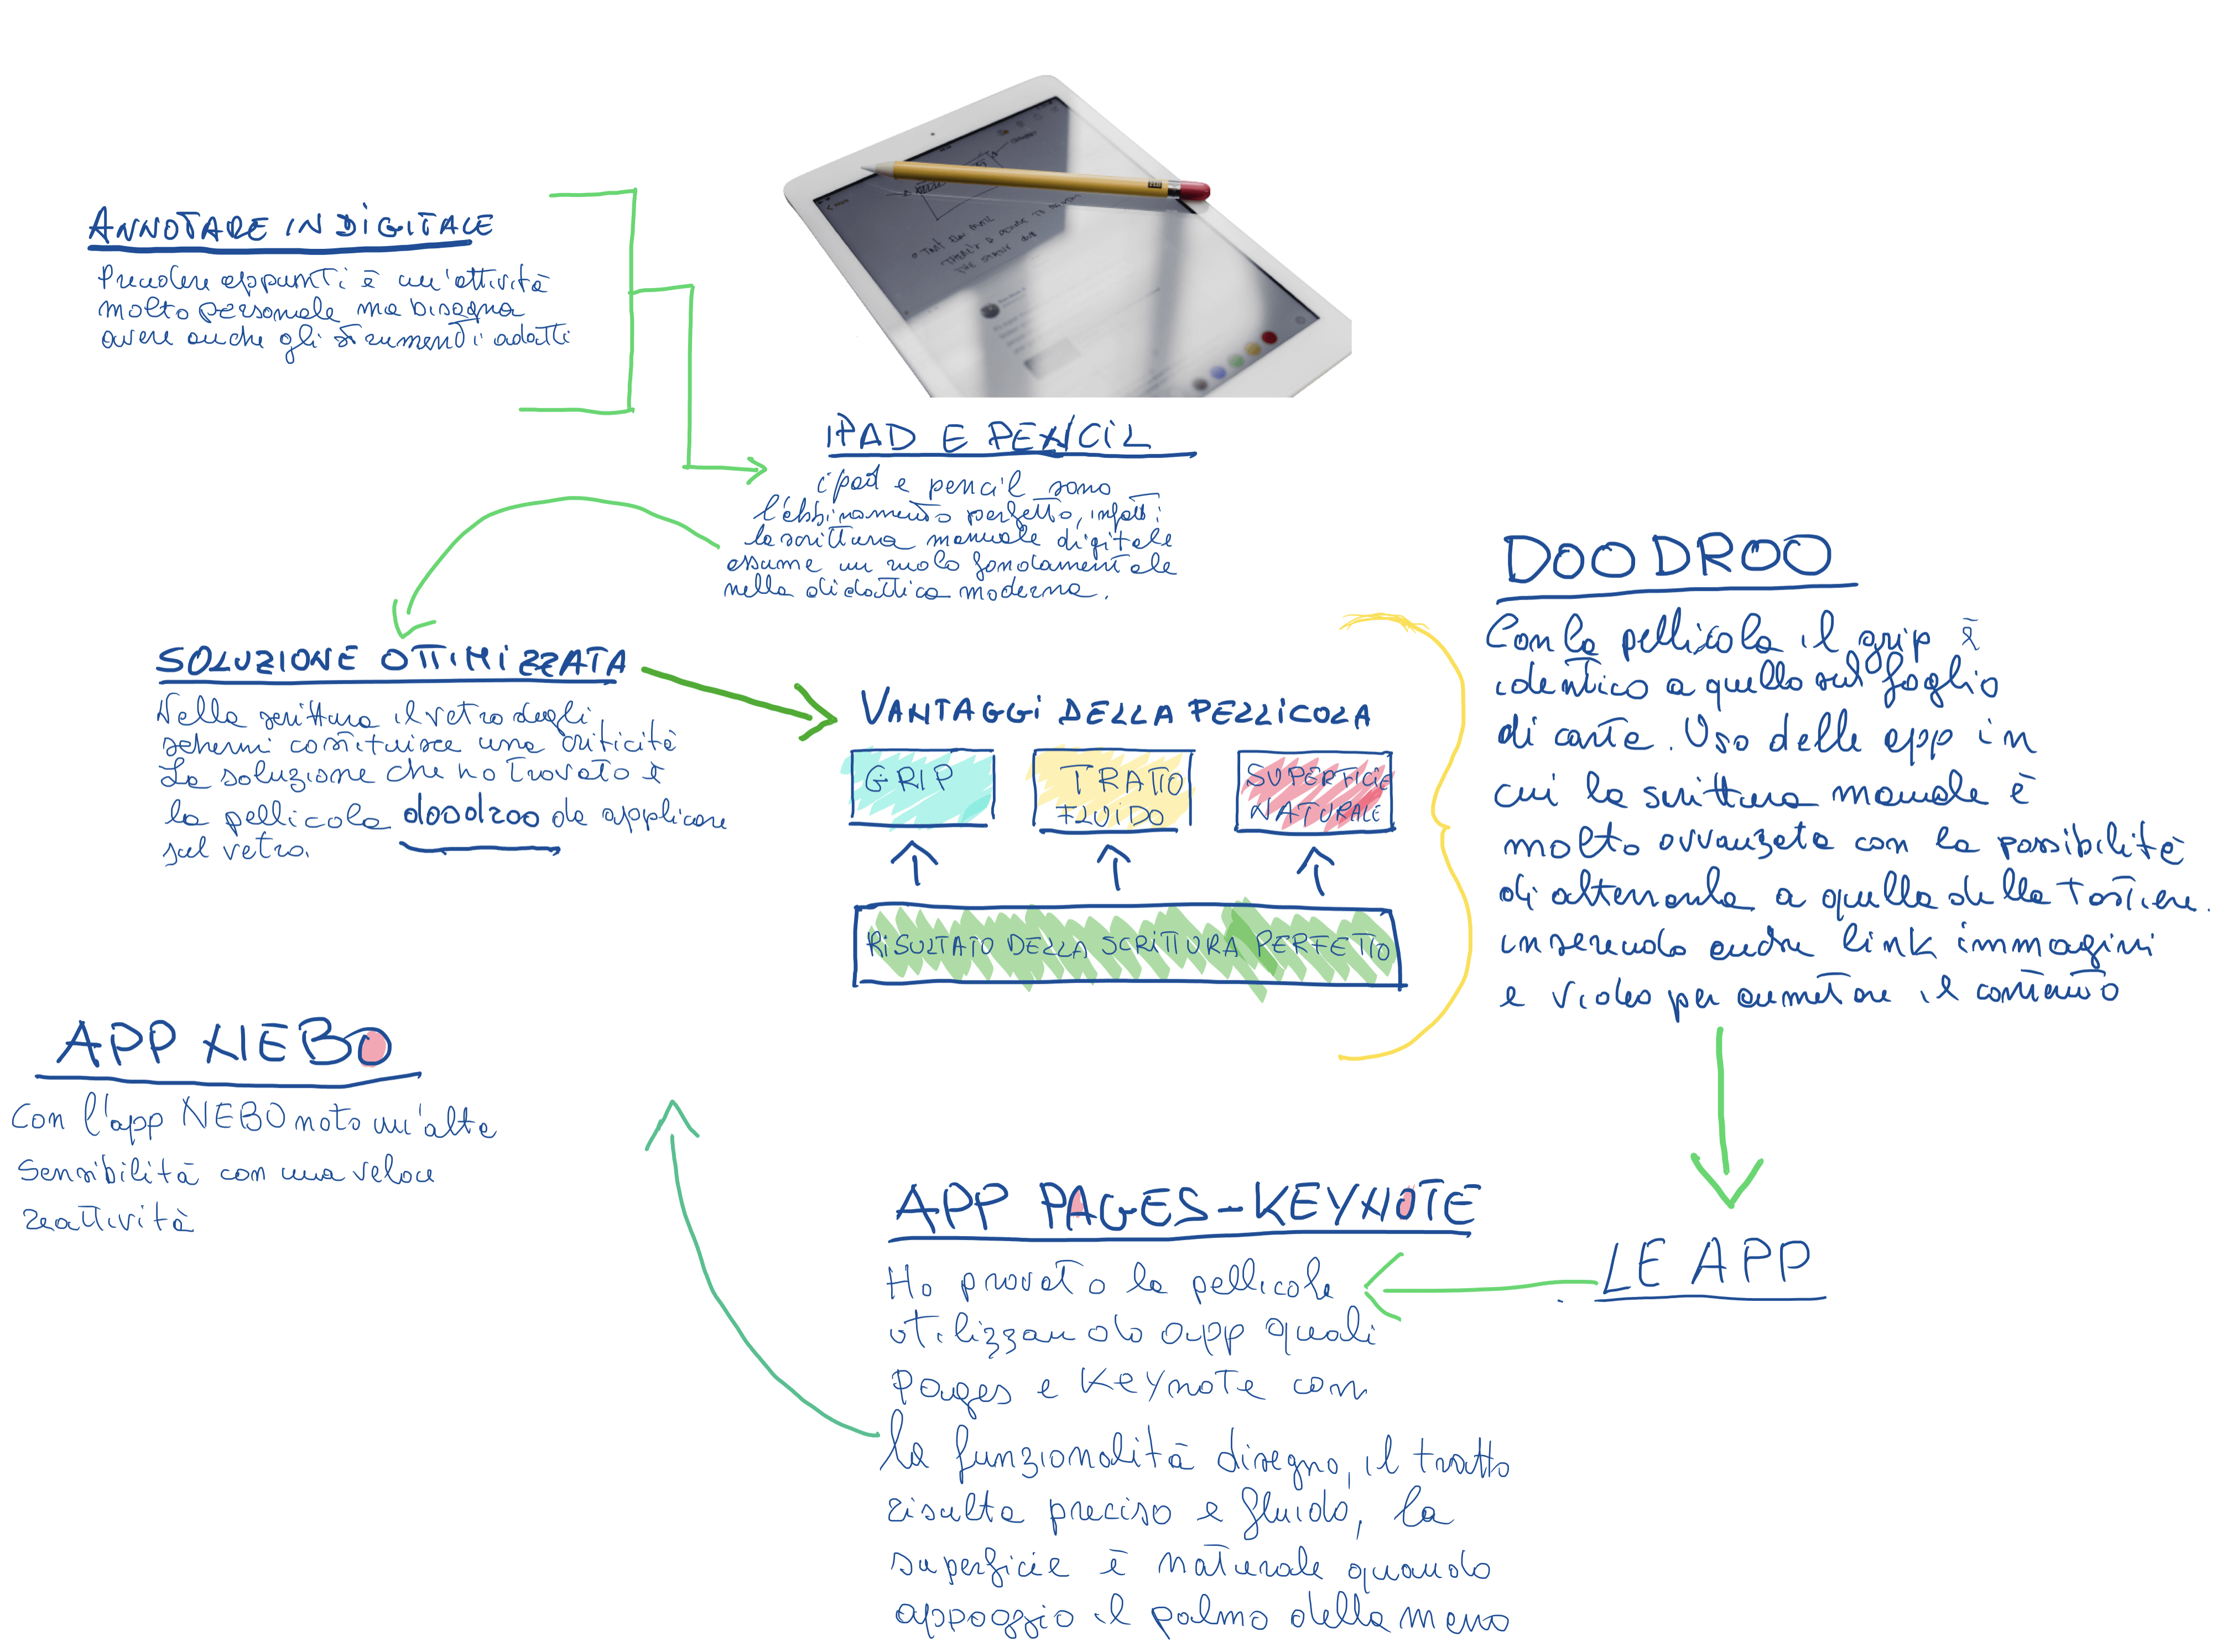 ANNOTARE IN DIGITALE
Prendere appunti è un'attività
molto personale ma bisogna
avere anche gli strumenti adatti
IPAD E PENCIL
ipad e pencil sono
l'abbinamento perfetto, infatti
la scrittura manuale digitale
assume un ruolo fondamentale
nella didattica moderna.
SOLUZIONE OTTIMIZZATA
Nella scrittura il vetro degli
schermi costituisce una criticità
La soluzione che ho trovato è
la pellicola doodroo da applicare
sul vetro.
VANTAGGI DELLA PELLICOLA
GRIP
TRATTO
FLUIDO
SUPERFICIE
NATURALE
RISULTATO DELLA SCRITTURA PERFETTO
DOODROO
Con la pellicola il grip è
identico a quello sul foglio
di carta. Uso delle app in
cui la scrittura manuale è
molto avvanzata con la possibilità
di alternarla a quella della tastiera.
inserendo anche link immagini
e video per aumetare il contenuto
LE APP
APP PAGES-KEYNOTE
Ho provato la pellicola
utilizzando app quali
Pages e Keynote con
la funzionalità disegno, il tratto
risulta preciso e fluido, la
superficie è naturale quando
appoggio il palmo della mano
APP NEBO
Con l'app NEBO noto un'alta
sensibilità con una veloce
reattività